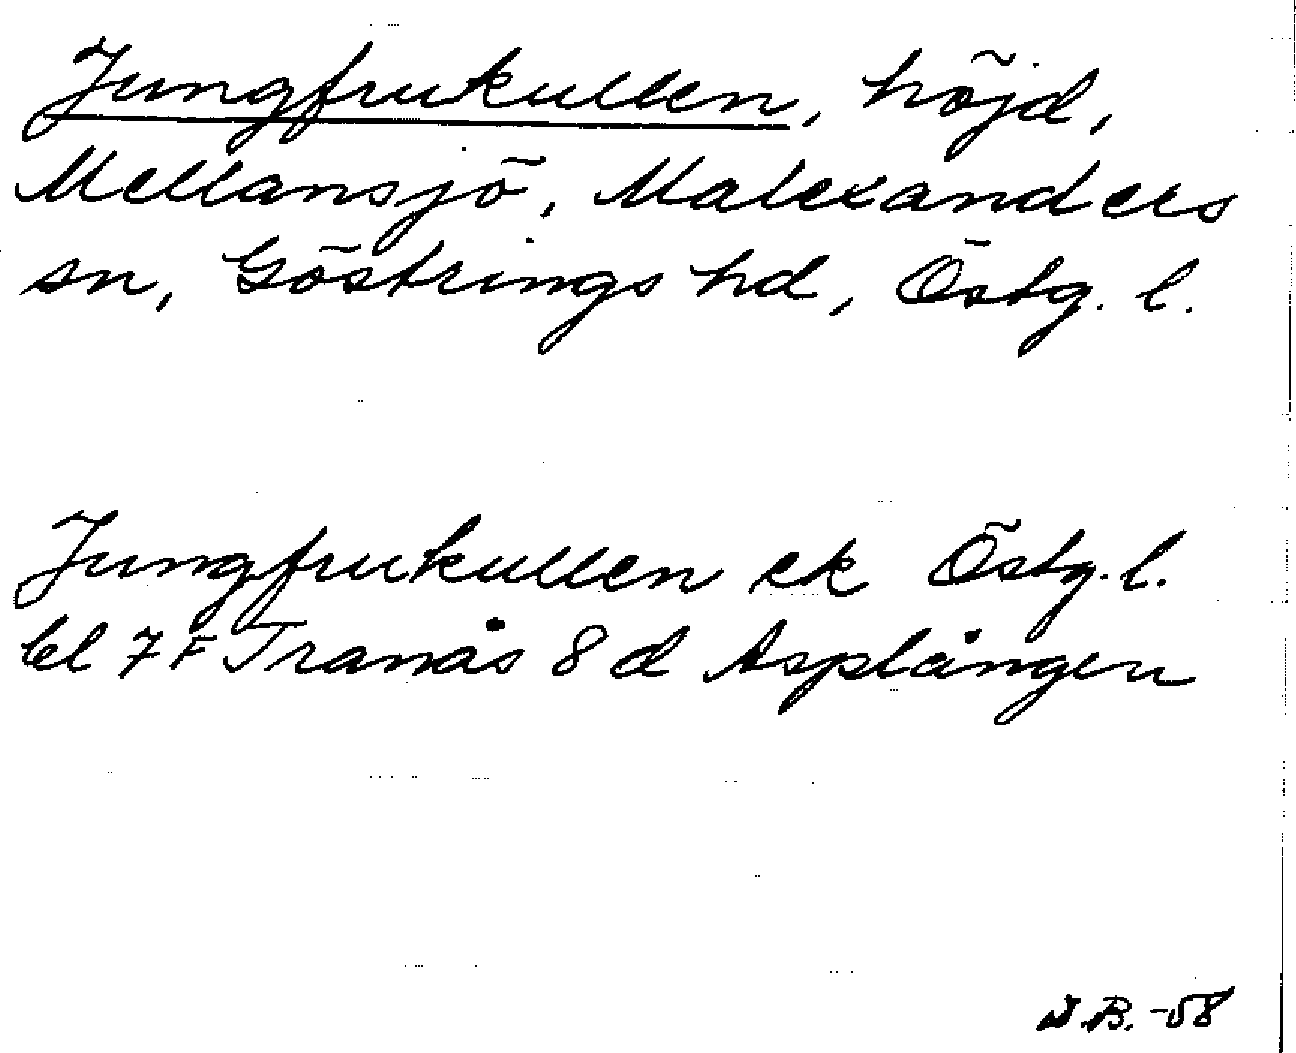 Jungfrukullen, höjd,
Mellansjö, Malexanders
sn, Göstrings hd, Östg. l.
Jungfrukullen ek Östg. l.
bl 7 F Tranås 8 d Asplången
B. -58